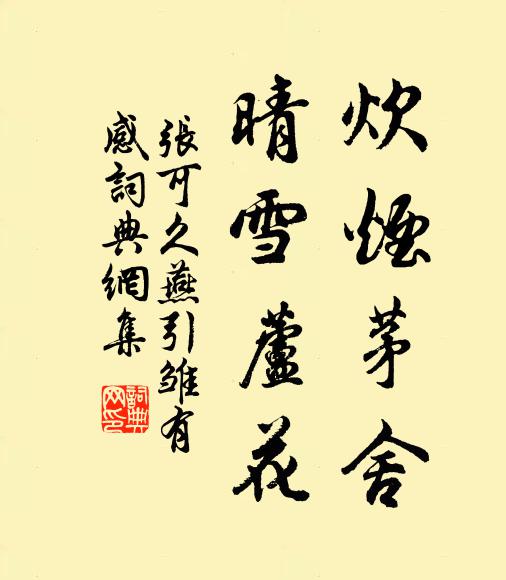 炊煙茅舍
晴雪蘆花
張可久燕引雛有
感詞典網集
詞典
网印